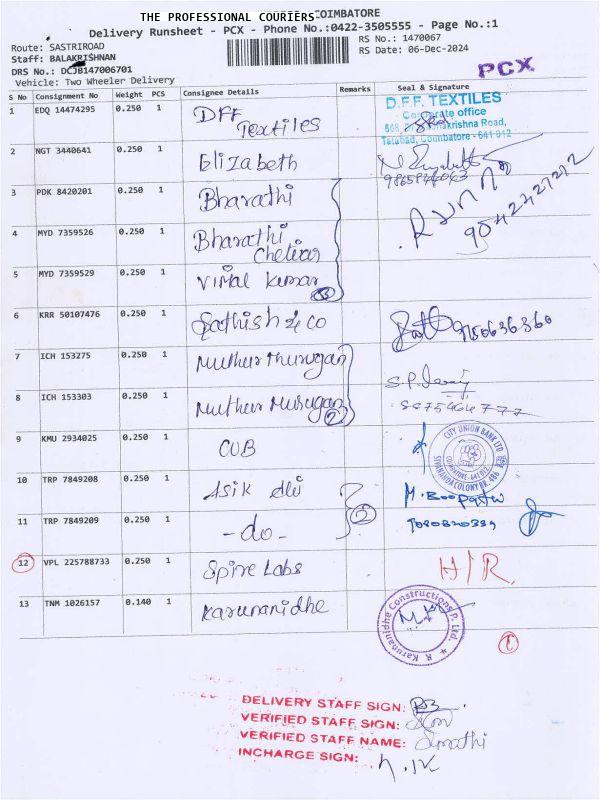 THE PROFESSIONAL COURIERS COIMBATORE
Delivery Runsheet - PCX - Phone No.:0422-3505555 - Page No.:1
Route: SASTRIROAD
RS No.: 1470067
Staff: BALAKRISHNAN
RS Date: 06-Dec-2024
DRS No.: DCJB147006701
Vehicle: Two Wheeler Delivery
PCX
S No Consignment No Weight PCS Consignee Details Remarks Seal & Signature
1 EDQ 14474295 0.250 1 DFF Textiles
D.F.F. TEXTILES
Corporate office
Tatabad, Coimbatore - 641 012
2 NGT 3440641 0.250 1 Elizabeth
3 PDK 8420201 0.250 1 Bharathi
4 MYD 7359526 0.250 1 Bharathi Chetiar
9042427212
5 MYD 7359529 0.250 1 Vimal Kumar 3
6 KRR 50107476 0.250 1 Sathish & Co
7 ICH 153275 0.250 1 Muthur Murugan
8 ICH 153303 0.250 1 Muthur Murugan 2
9 KMU 2934025 0.250 1 CUB
CITY UNION BANK LTD
COIMBATORE-641012
SIVANANDA COLONY BR. 486
10 TRP 7849208 0.250 1 Asik Ali
11 TRP 7849209 0.250 1 -do- 2
12 VPL 225788733 0.250 1 Spire Labs H/R
13 TNM 1026157 0.140 1 Karunanidhe
R. Karunanidhe Constructions P. Ltd.
1
DELIVERY STAFF SIGN:
VERIFIED STAFF SIGN:
VERIFIED STAFF NAME:
INCHARGE SIGN: